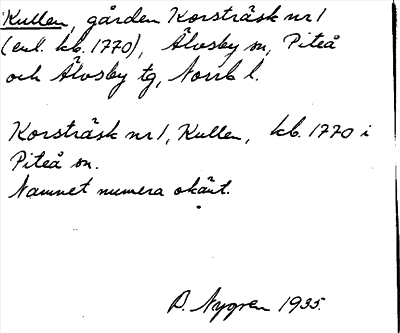 Kullen, gården Korsträsk nr 1
(enl. kb. 1770), Älvsby sn, Piteå
och Älvsby tg, Norrb l.
Korsträsk nr 1, Kullen, kb. 1770 i
Piteå sn.
Namnet numera okänt.
B. Nygren 1935.